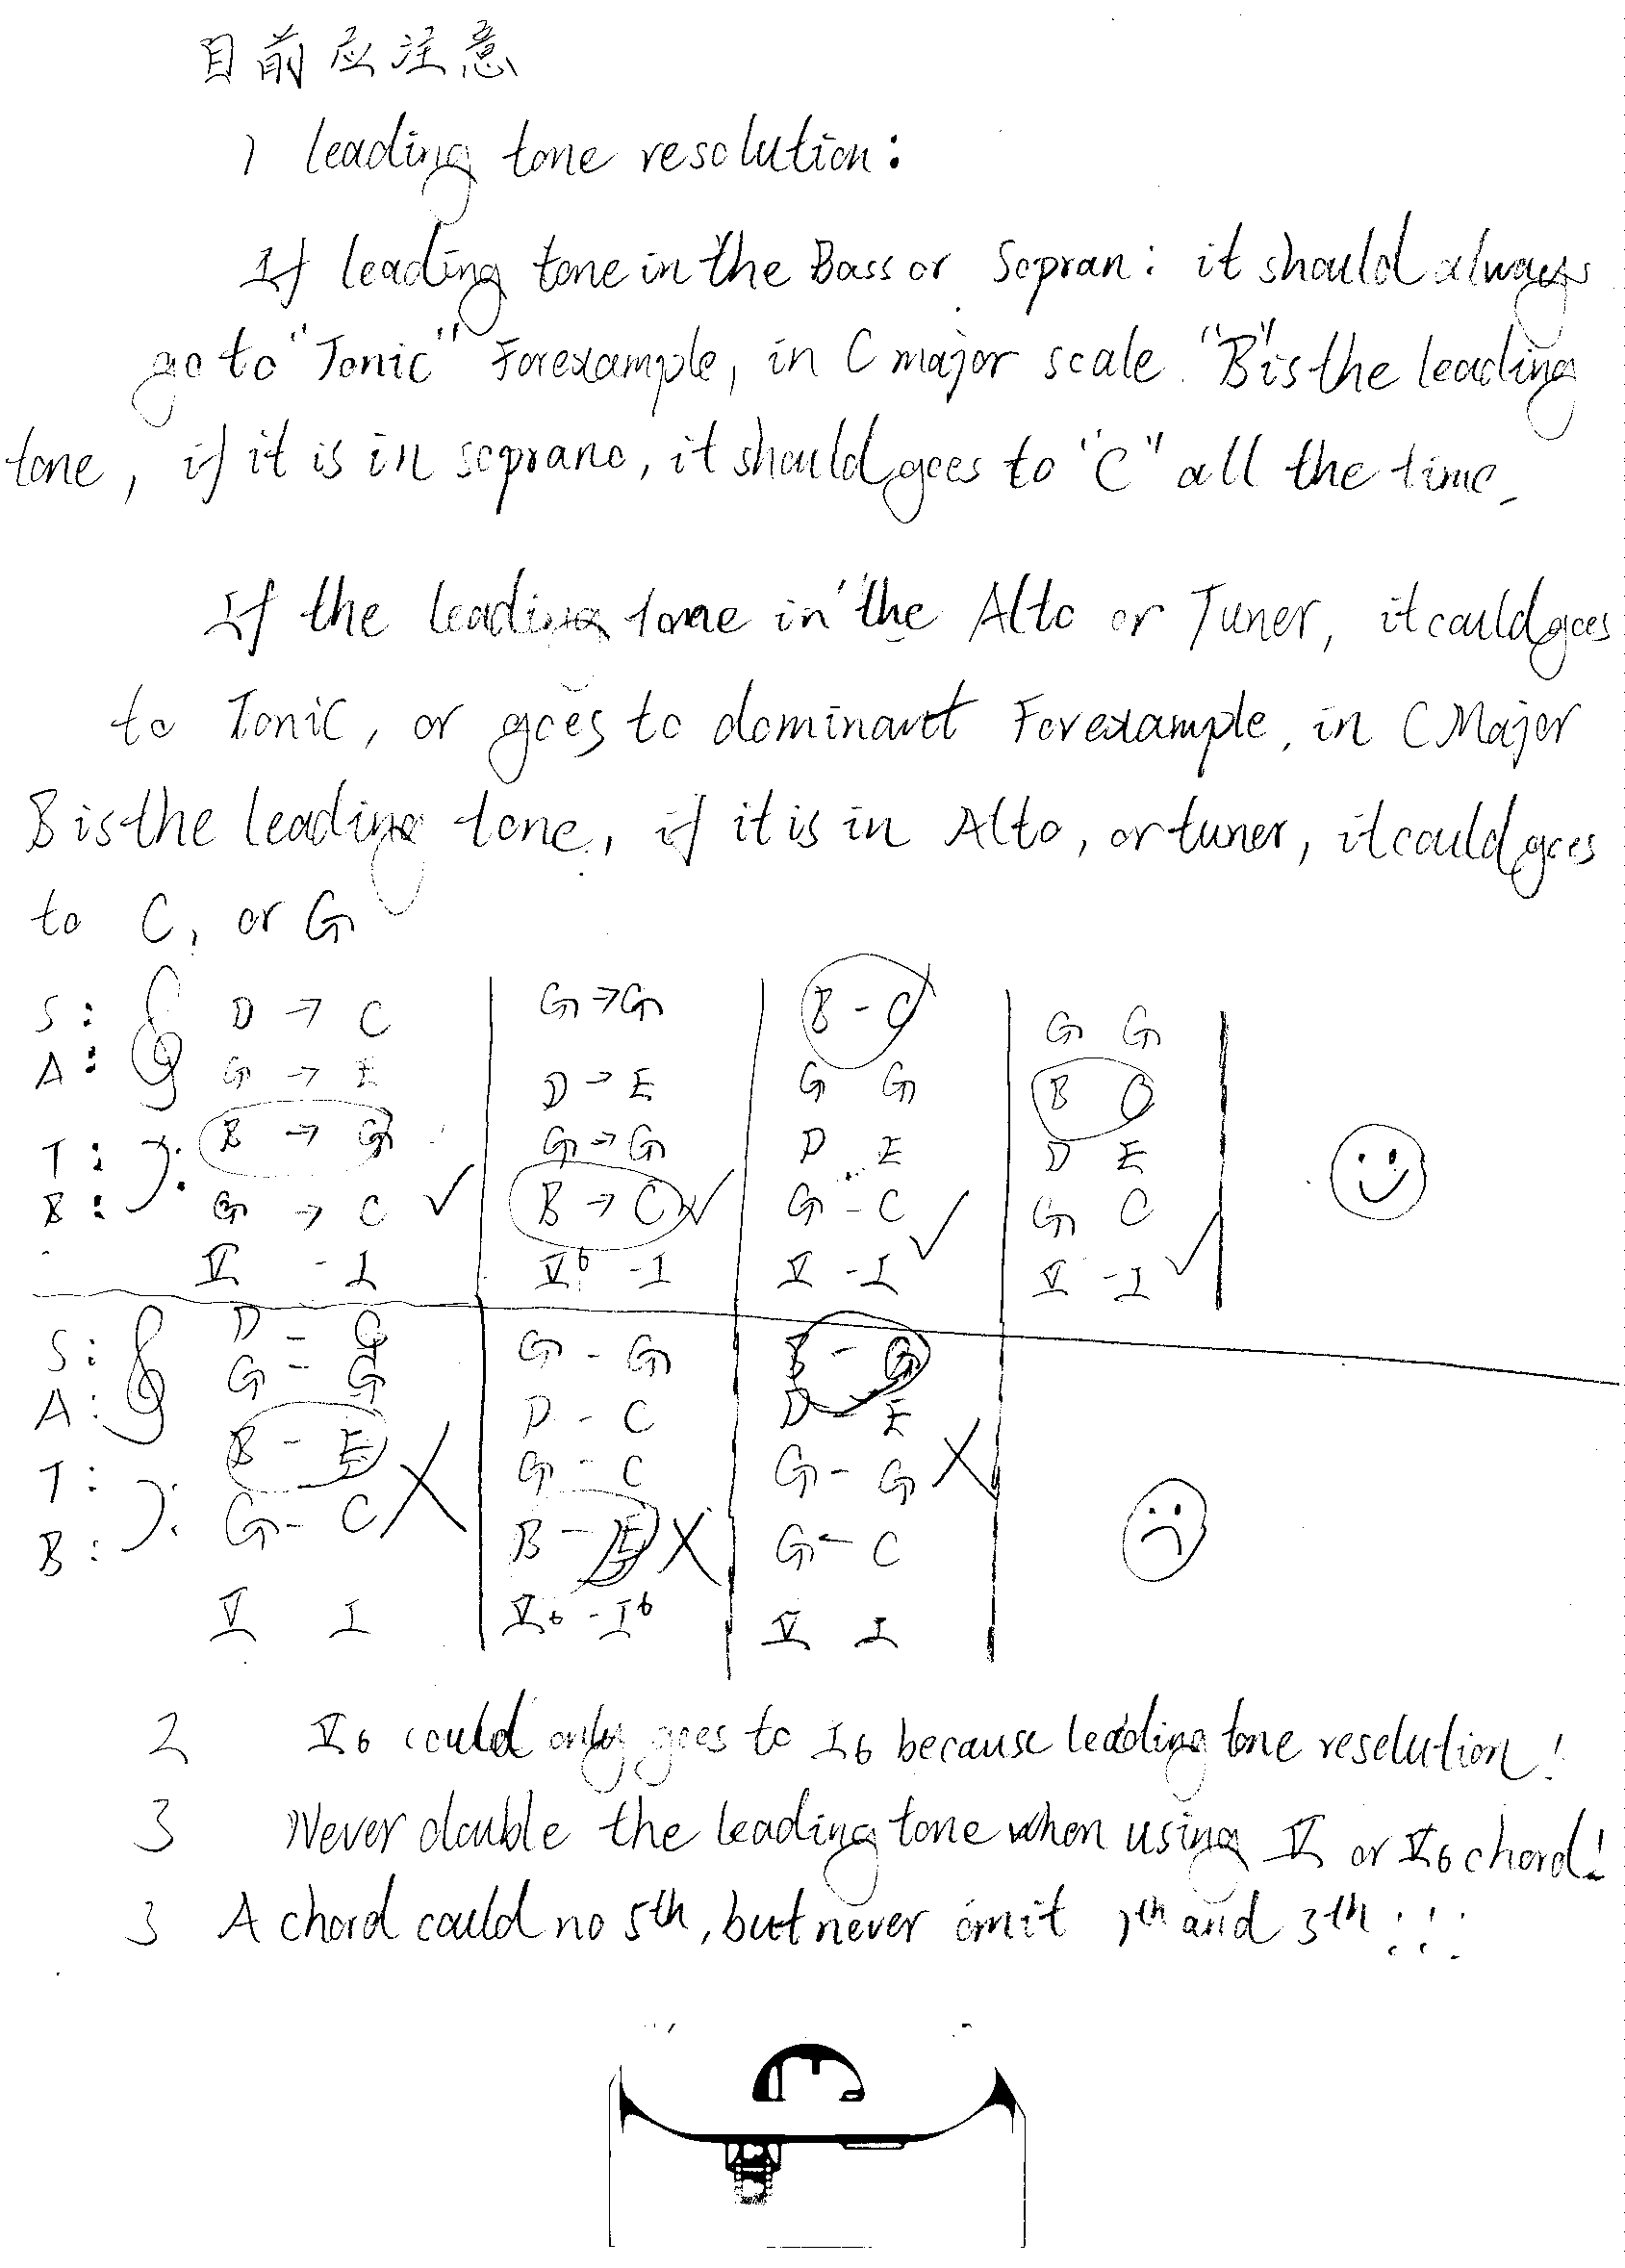 目前应注意
1 leading tone resolution:
If leading tone in the Bass or Sopran: it should always
go to "Tonic" For example, in C major scale. "B" is the leading
tone, if it is in soprano, it should goes to "C" all the time.
If the leading tone in the Alto or Tuner, it could goes
to Tonic, or goes to dominant For example, in C Major
B is the leading tone, if it is in Alto, or tuner, it could goes
to C, or G
S: D → C G → G B - C G G
A: G → E D → E G G B C
T: B → G G → G D E D E
B: G → C ✓ B → C ✓ G - C ✓ G C
V - I V6 - I V - I V - I ✓
S: D - C G - G B - G
A: G - G D - C D - E
T: B - E G - C G - G
B: G - C X B - E X G - C X
V I V6 - I6 V I
2 V6 could only goes to I6 because leading tone resolution!
3 Never double the leading tone when using V or V6 chord!
3 A chord could no 5th, but never omit 1th and 3th !!!